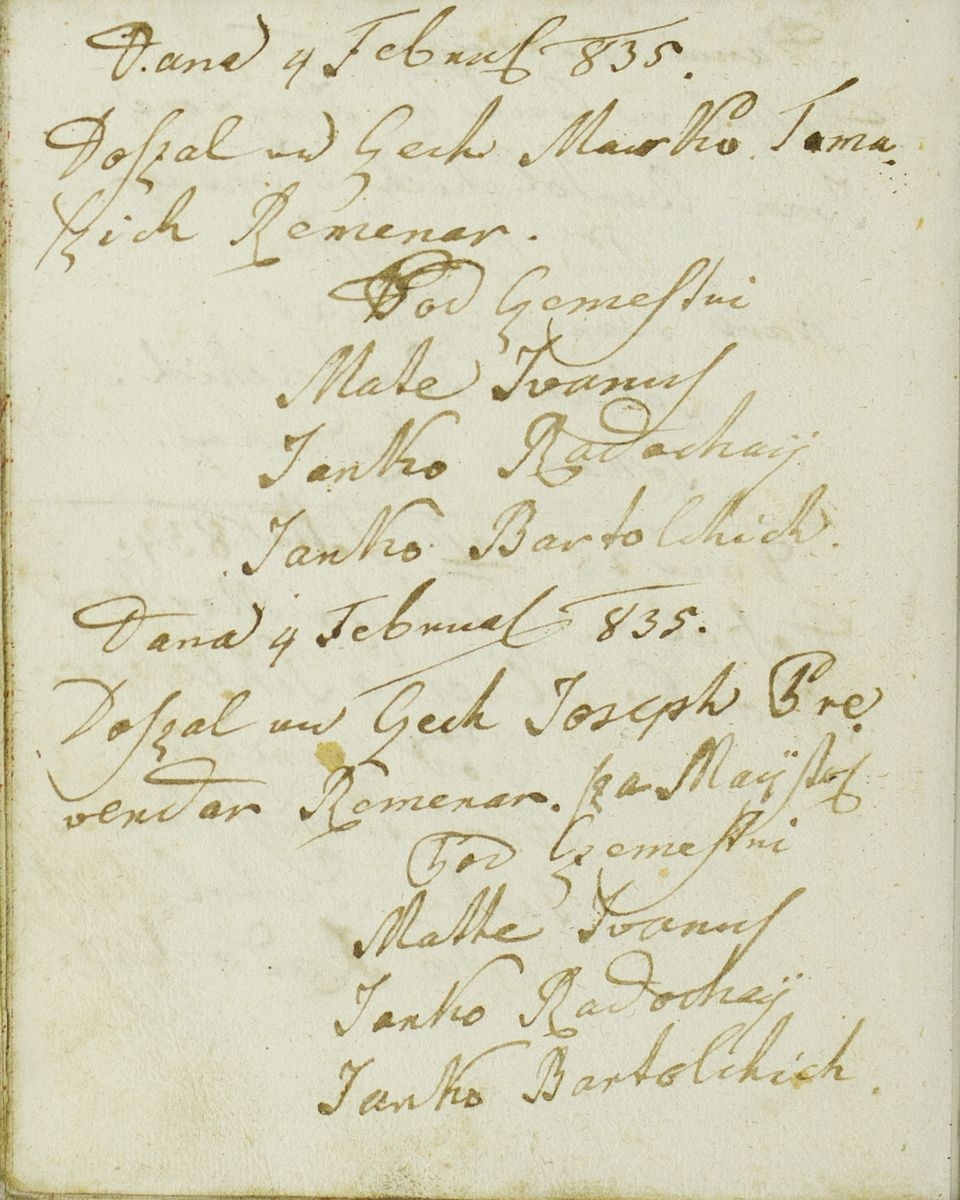 Dana 4 Februaſ 835.
Doſzal vu Czeh Marko Toma-
ſzich Remenar.
Pod Czemeſtri
Mate Ivanuſ
Janko Radochaÿ
Janko Bartolchich.
Dana 4 Februaſ 835.
Doſzal vu Czeh Joseph Pre-
vendar Remenar. ſza Mayſtoſ
Pod Czemeſtri
Matte Ivanuſ
Janko Radochaÿ
Janko Bartolchich.